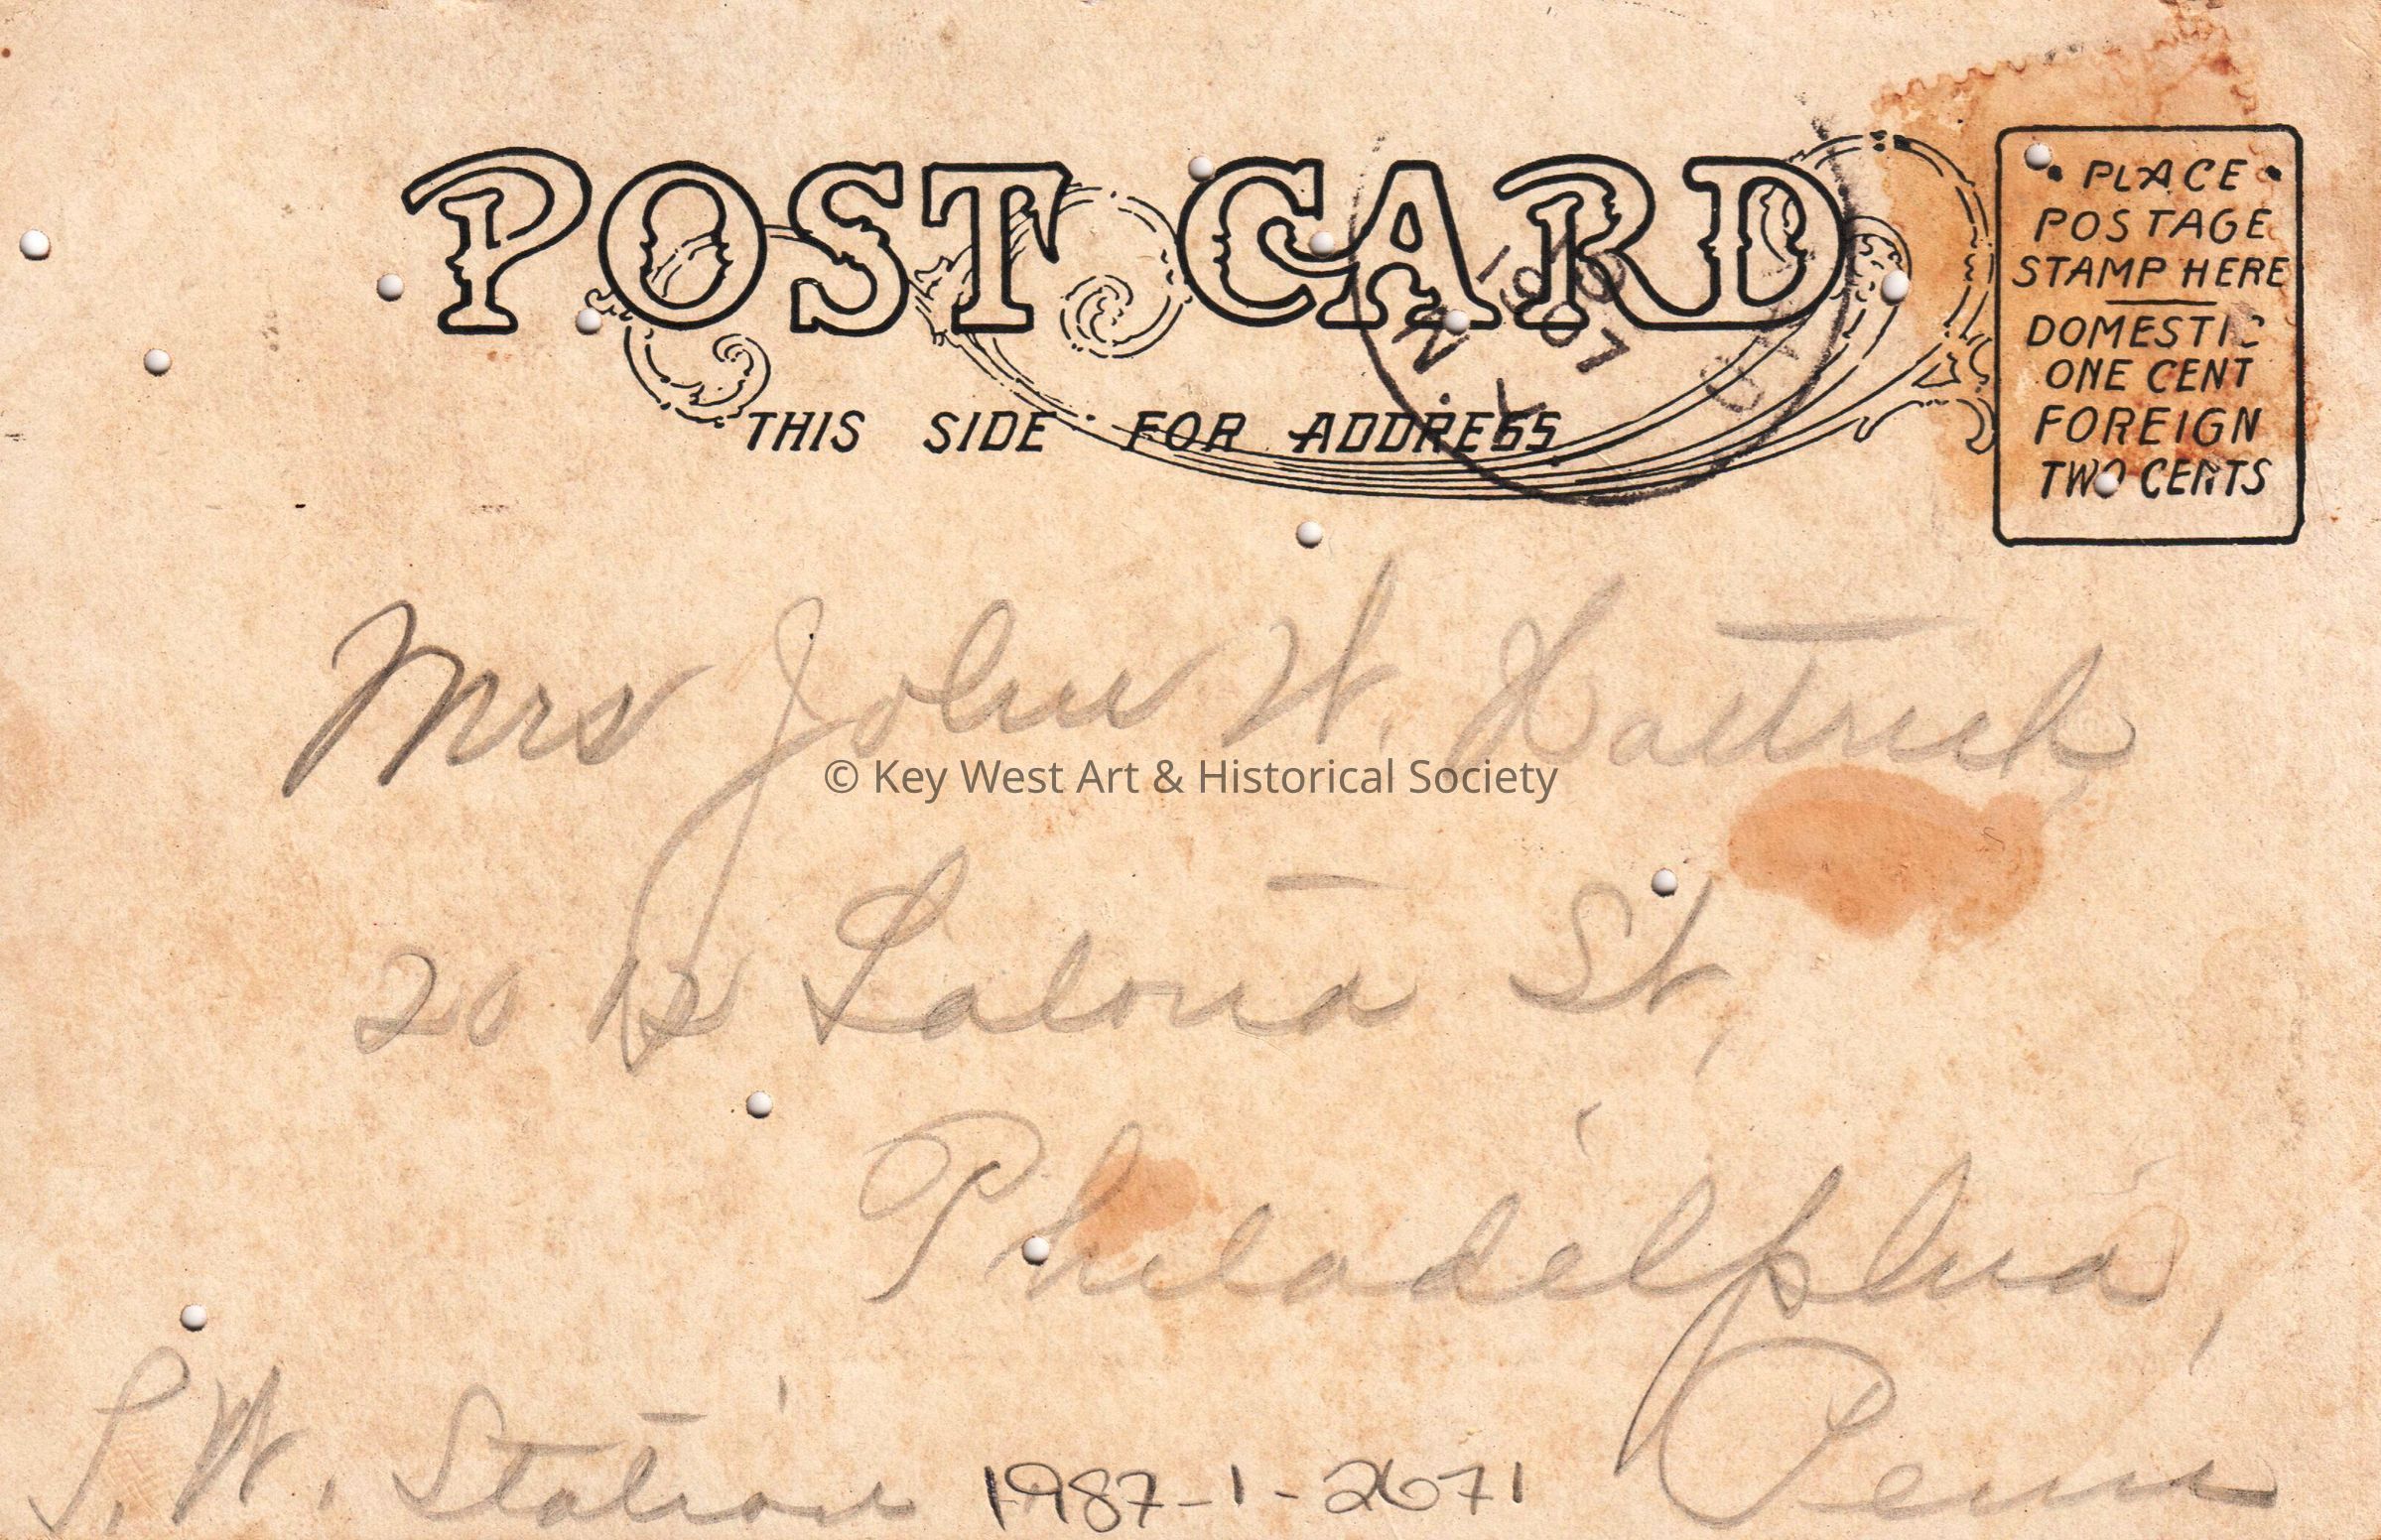 POST CARD
THIS SIDE FOR ADDRESS
• PLACE •
POSTAGE
STAMP HERE
DOMESTIC
ONE CENT
FOREIGN
TWO CENTS
Mrs John W.
© Key West Art & Historical Society
2012 Latona St,
Philadelphia,
Penn
S. W. Station
1987-1-2671